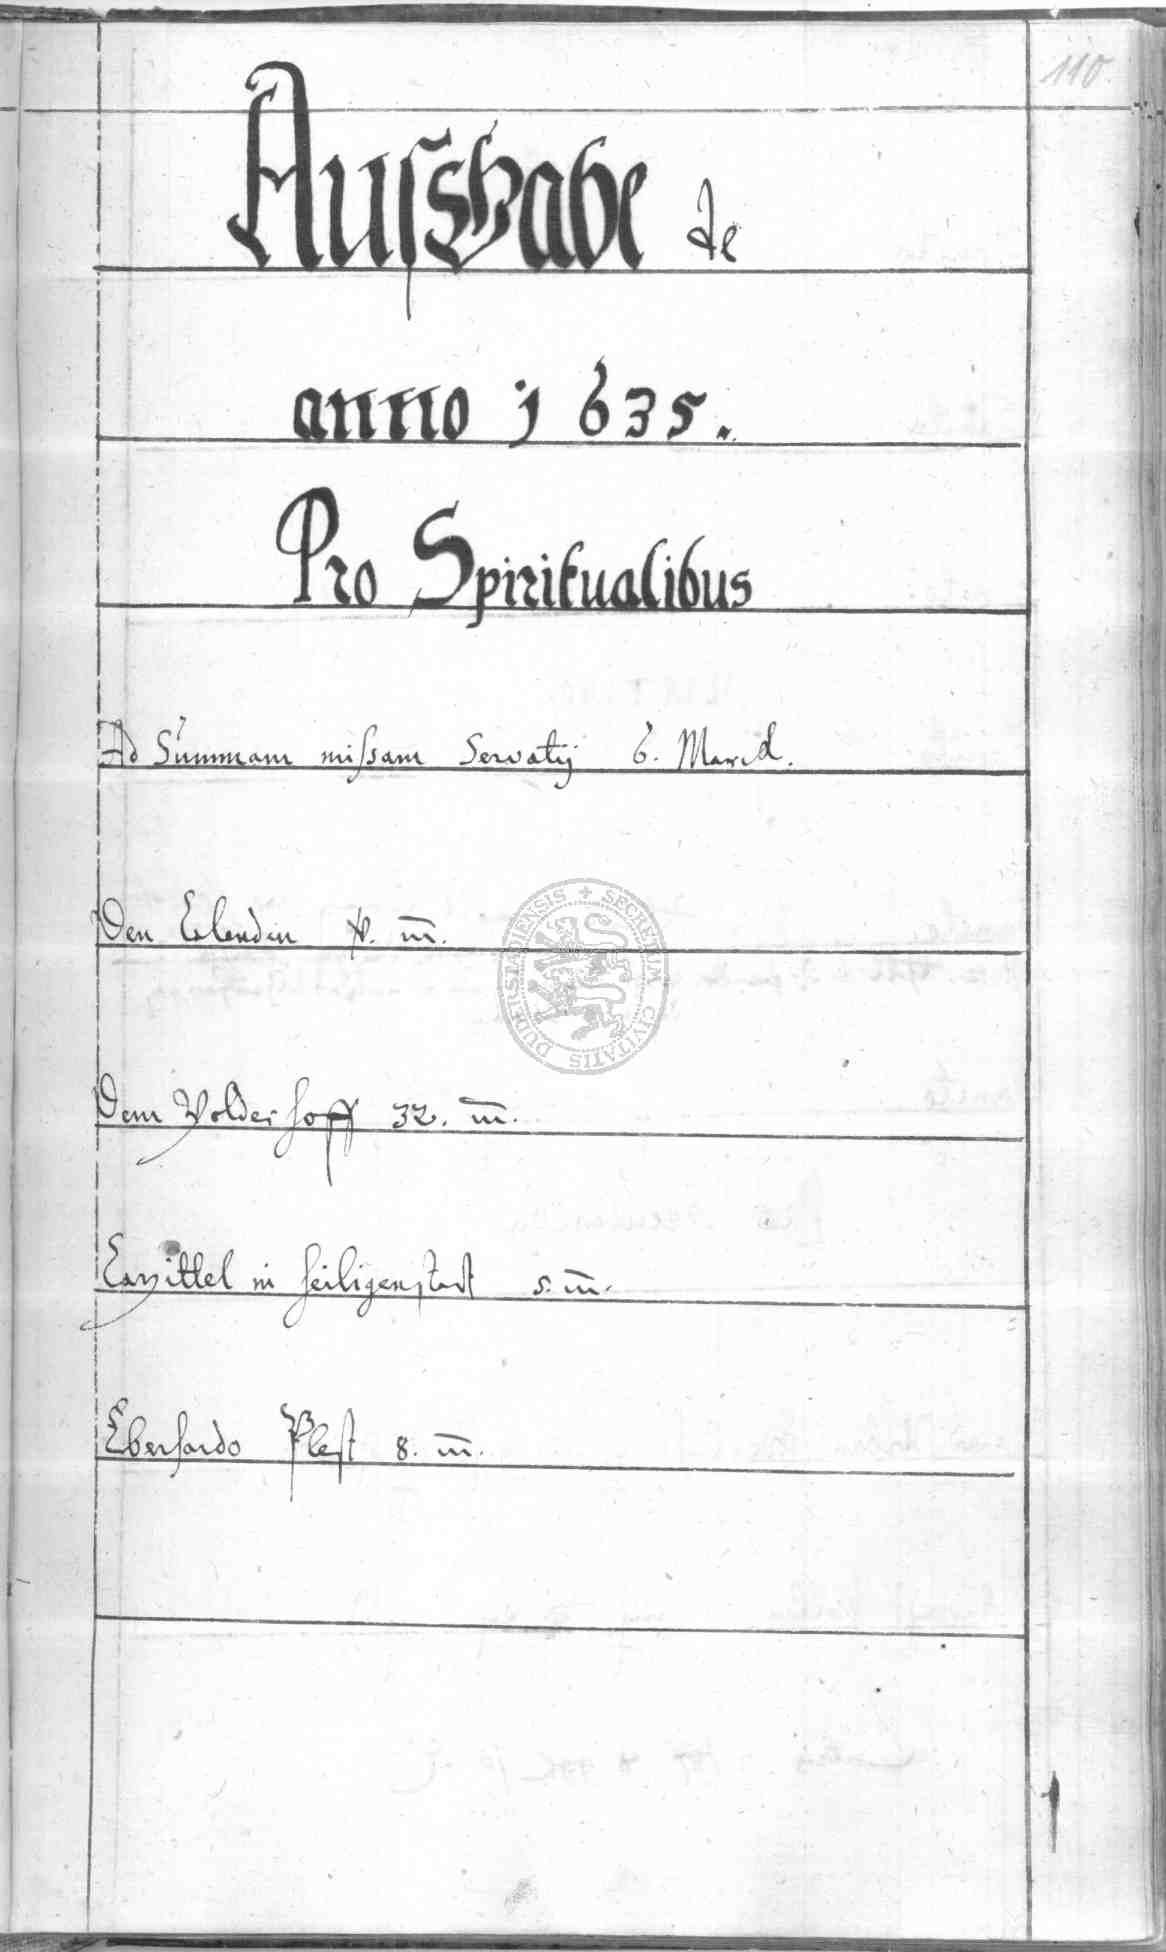 110
Außgabe de
anno 1635.
Pro Spiritualibus
Ad Summam missam Servatij 6. Marcd.
Den Elenden m̄.
Dem Polder hoff 32. m̄.
Capittel in Heiligenstadt 5. m̄.
Eberhardo Plest 8. m̄.
SECRETUM CIVITATIS DUDERSTADENSIS